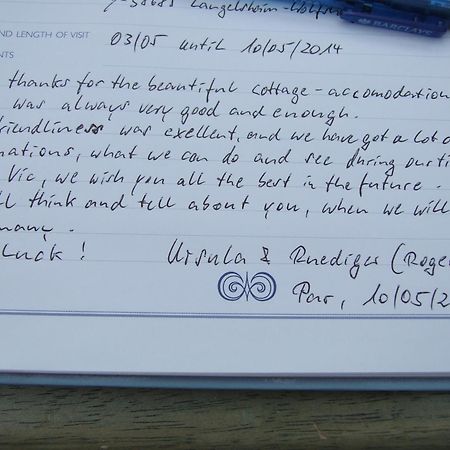 Langelsheim-Wolfs
BARCLAYC
ND LENGTH OF VISIT
03/05 until 10/05/2014
NTS
thanks for the beautiful cottage - accomodation
was always very good and enough.
friendliness was exellent, and we have got a lot o
mations, what we can do and see during our ti
Vic, we wish you all the best in the future.
ll think and tell about you, when we will
many.
Luck!
Ursula & Ruediger (Roge
Par, 10/05/2